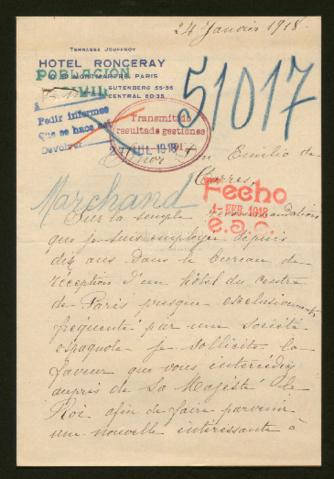 24 Janvier 1918.
TERRASSE JOUFFROY
HOTEL RONCERAY
POBLACIÓN
MONTMARTRE, PARIS
CIVIL
GUTENBERG 55-36
CENTRAL 80-35
51017
Pedir informes
Que se hace así
Devolver
Transmitido
resultado gestiones
JUL 1918
Emilio de
Torres
Marchand
Fecho
1-FEB. 1918
e.a.c.
Sur la simple recommandation
que je suis employé depuis
dix ans dans le bureau de
réception d'un hôtel du centre
de Paris presque exclusivement
fréquenté par une Société
espagnole je sollicite la
faveur que vous intercédiez
auprès de Sa Majesté le
Roi afin de faire parvenir
une nouvelle intéressante à